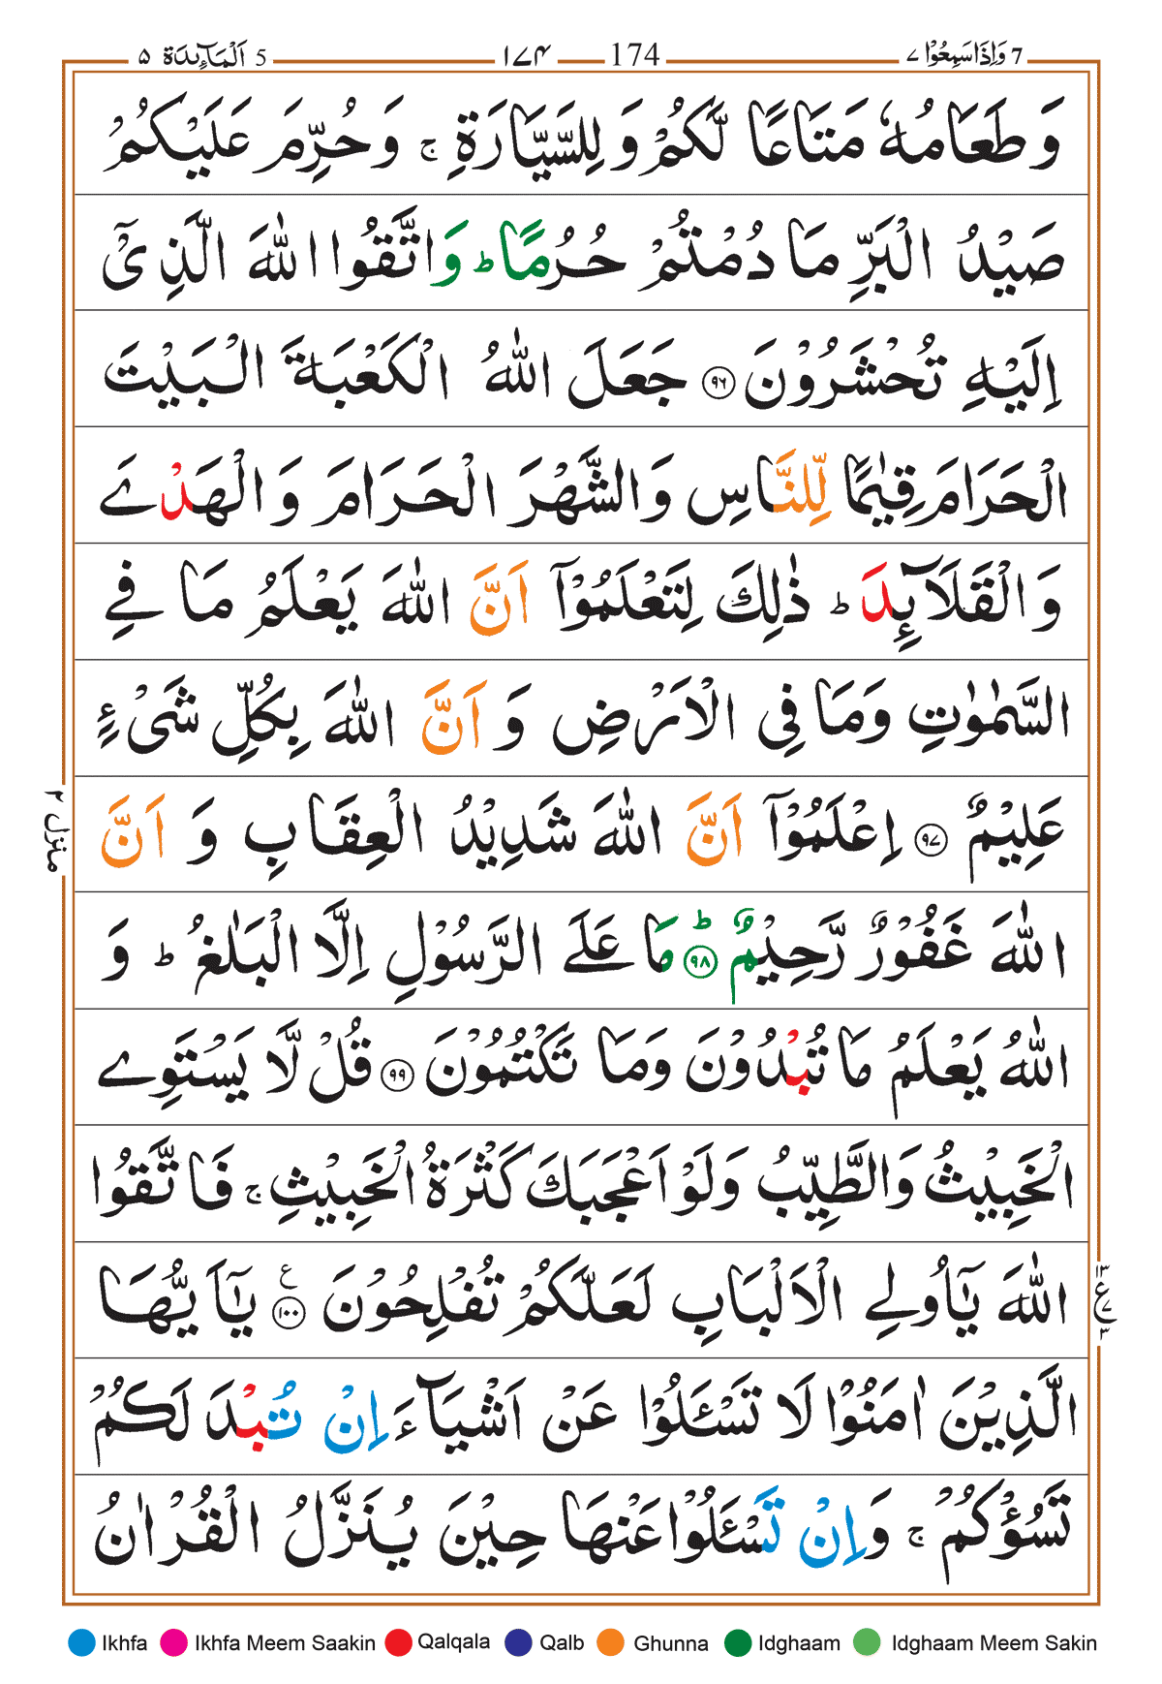 5 اَلْمَآىِٕدَة ۵
174 ١٧۴
7 وَاِذَاسَمِعُوْا ٧
وَطَعَامُهٗ مَتَاعًا لَّكُمْ وَلِلسَّيَّارَةِ ۚ وَحُرِّمَ عَلَيْكُمْ
صَيْدُ الْبَرِّ مَا دُمْتُمْ حُرُمًا ؕ وَاتَّقُوا اللّٰهَ الَّذِىْۤ
اِلَيْهِ تُحْشَرُوْنَ ۹۶ جَعَلَ اللّٰهُ الْكَعْبَةَ الْبَيْتَ
الْحَرَامَ قِيٰمًا لِّلنَّاسِ وَالشَّهْرَ الْحَرَامَ وَالْهَدْىَ
وَالْقَلَآٮِٕدَ ؕ ذٰلِكَ لِتَعْلَمُوْۤا اَنَّ اللّٰهَ يَعْلَمُ مَا فِى
السَّمٰوٰتِ وَمَا فِى الْاَرْضِ وَاَنَّ اللّٰهَ بِكُلِّ شَىْءٍ
عَلِيْمٌ ۹۷ اِعْلَمُوْۤا اَنَّ اللّٰهَ شَدِيْدُ الْعِقَابِ وَاَنَّ
اللّٰهَ غَفُوْرٌ رَّحِيْمٌ ؕ ۹۸ مَا عَلَى الرَّسُوْلِ اِلَّا الْبَلٰغُ ؕ وَ
اللّٰهُ يَعْلَمُ مَا تُبْدُوْنَ وَمَا تَكْتُمُوْنَ ۹۹ قُلْ لَّا يَسْتَوِى
الْخَبِيْثُ وَالطَّيِّبُ وَلَوْ اَعْجَبَكَ كَثْرَةُ الْخَبِيْثِ ۚ فَاتَّقُوا
اللّٰهَ يٰۤاُولِى الْاَلْبَابِ لَعَلَّكُمْ تُفْلِحُوْنَ ۱۰۰ ع يٰۤاَيُّهَا
الَّذِيْنَ اٰمَنُوْا لَا تَسْـَٔلُوْا عَنْ اَشْيَآءَ اِنْ تُبْدَ لَكُمْ
تَسُؤْكُمْ ۚ وَاِنْ تَسْـَٔلُوْا عَنْهَا حِيْنَ يُنَزَّلُ الْقُرْاٰنُ
منزل ۲
۱۳ ع ٧ ۳
Ikhfa Ikhfa Meem Saakin Qalqala Qalb Ghunna Idghaam Idghaam Meem Sakin